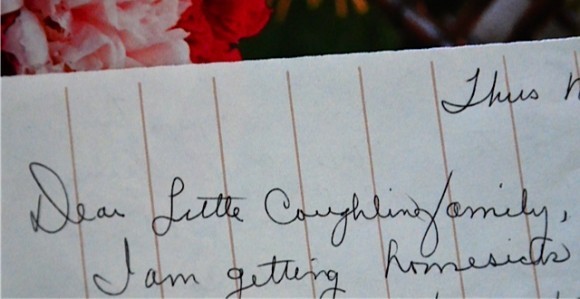 Thus
Dear Little Coughlin family,
I am getting homesick